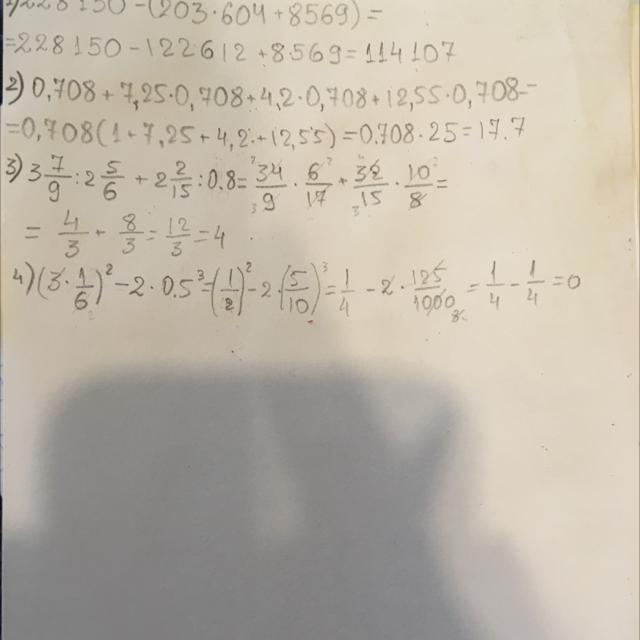 1) 228150-(203·604+8569)=
=228150-122612+8569=114107
2) 0,708+7,25·0,708+4,2·0,708+12,55·0,708=
=0,708(1+7,25+4,2+12,55)=0.708·25=17.7
3) 3 7/9 : 2 5/6 + 2 2/15 : 0.8 = 34/9 · 6/17 + 32/15 · 10/8 =
= 4/3 + 8/3 = 12/3 = 4
4) (3·1/6)² - 2·0.5³ = (1/2)² - 2·(5/10)³ = 1/4 - 2·125/1000 = 1/4 - 1/4 = 0